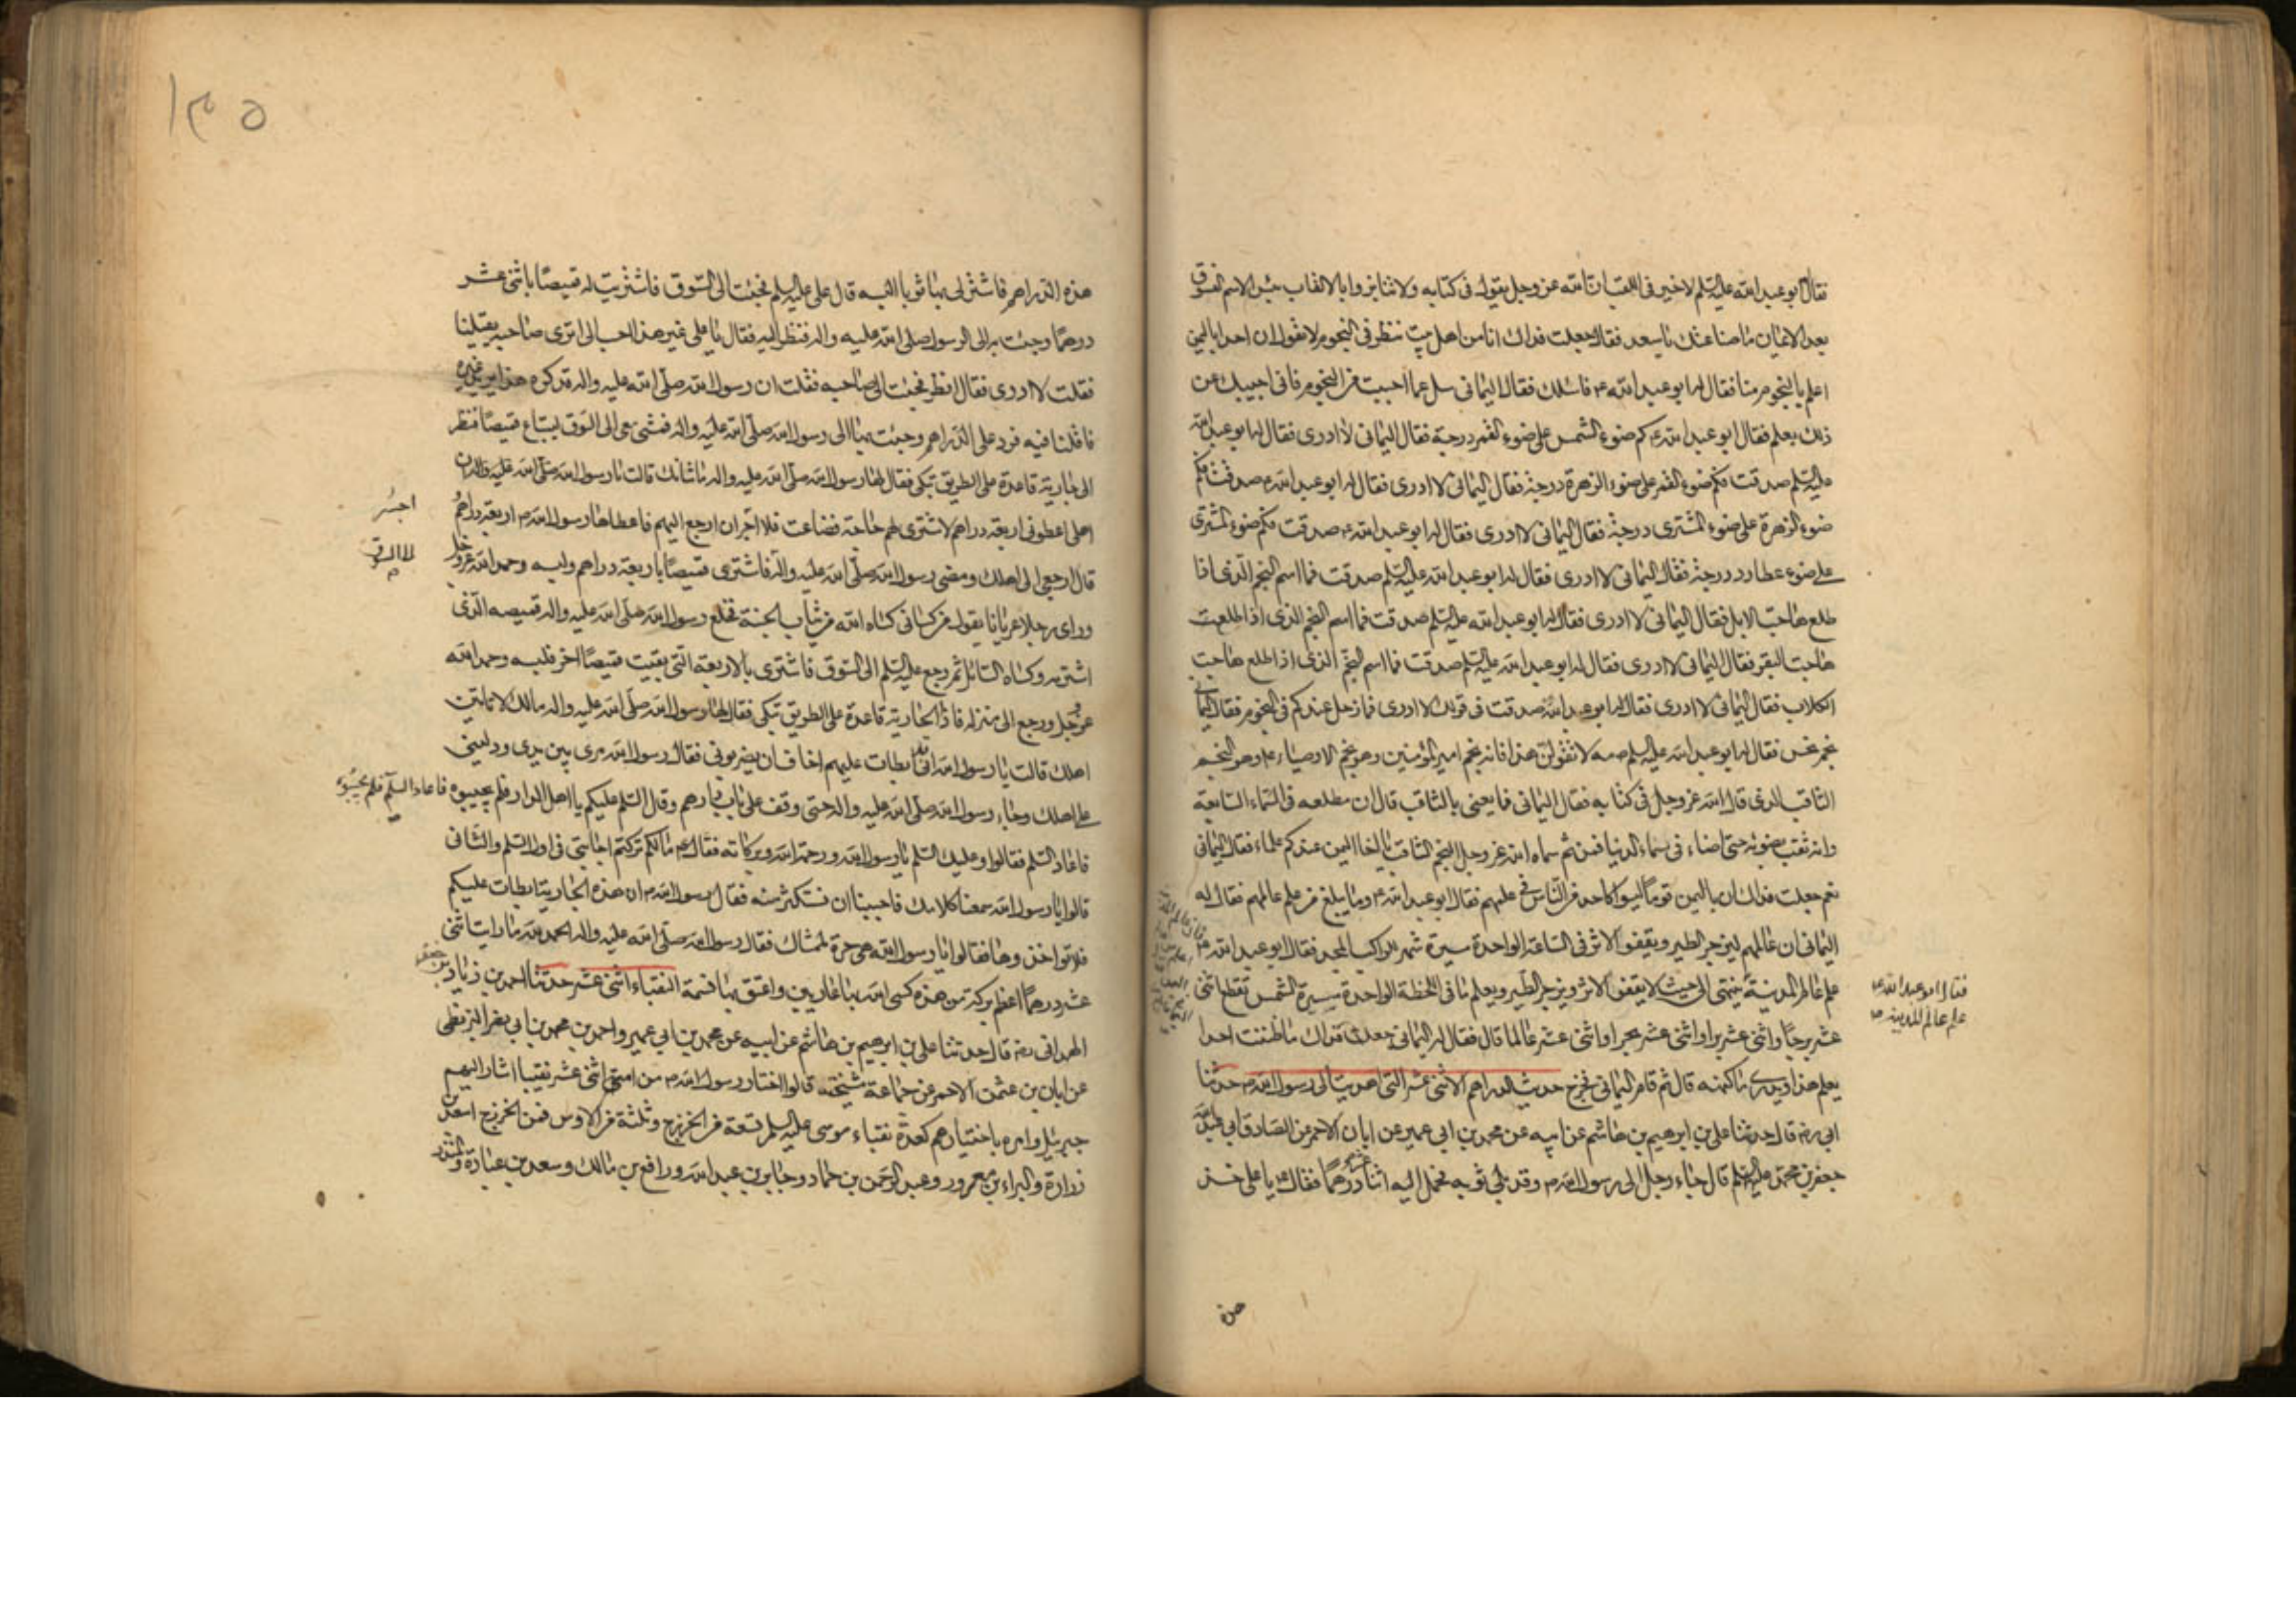 فقال ابو عبد الله عليه السلم لا خير فى اللقب ان الله عز وجل يقول فى كتابه ولا تنابزوا بالالقاب بئس الاسم الفسوق
بعد الايمان ما صناعتك يا سعد فقال جعلت فداك انا من اهل بيت ننظر فى النجوم لا نقول ان احدا باليمن
اعلم بالنجوم منا فقال له ابو عبد الله ع فاسئلك فقال اليمانى سل عما احببت من النجوم فانى اجيبك عن
ذلك بعلم فقال ابو عبد الله ع كم ضوء الشمس على ضوء القمر درجة فقال اليمانى لا ادرى فقال له ابو عبد الله
عليه السلم صدقت فكم ضوء القمر على ضوء الزهرة درجة فقال اليمانى لا ادرى فقال له ابو عبد الله ع صدقت فكم
ضوء الزهرة على ضوء المشترى درجة فقال اليمانى لا ادرى فقال له ابو عبد الله ع صدقت فكم ضوء المشترى
على ضوء عطارد درجة فقال اليمانى لا ادرى فقال له ابو عبد الله عليه السلم صدقت فما اسم النجم الذى اذا
طلع هاجت الابل فقال اليمانى لا ادرى فقال له ابو عبد الله عليه السلم صدقت فما اسم النجم الذى اذا طلعت
هاجت البقر فقال اليمانى لا ادرى فقال له ابو عبد الله عليه السلم صدقت فما اسم النجم الذى اذا طلع هاجت
الكلاب فقال اليمانى لا ادرى فقال له ابو عبد الله صدقت فى قولك لا ادرى فما زحل عندكم فى النجوم فقال اليمانى
نجم نحس فقال له ابو عبد الله عليه السلم مه لا تقولن هذا فانه نجم امير المؤمنين وهو نجم الاوصياء ع وهو النجم
الثاقب الذى قال الله عز وجل فى كتابه فقال اليمانى فما يعنى بالثاقب قال ان مطلعه فى السماء السابعة
وانه ثقب بضوئه حتى اضاء فى سماء الدنيا فمن ثم سماه الله عز وجل النجم الثاقب يا اخا اليمن عندكم علماء فقال اليمانى
نعم جعلت فداك ان باليمن قوما ليسوا كاحد من الناس فى علمهم فقال ابو عبد الله ع وما يبلغ من علم عالمهم فقال له
اليمانى ان عالمهم ليزجر الطير ويقفوا الاثر فى الساعة الواحدة سيرة شهر للراكب المجد فقال ابو عبد الله ع
علم عالم المدينة ينتهى الى حيث لا يقفوا الاثر ويزجر الطير ويعلم ما فى اللحظة الواحدة مسيرة الشمس تقطع اثنى
عشر برجا واثنى عشر برا واثنى عشر بحرا واثنى عشر عالما قال فقال له اليمانى جعلت فداك ما ظننت احدا
يعلم هذا او يدرى ما كنهه قال ثم قام اليمانى فخرج حديث الدراهم الاثنى عشر التى اهديت الى رسول الله ص حدثنا
ابى ره قال حدثنا على بن ابرهيم بن هاشم عن ابيه عن محمد بن ابى عمير عن ابان الاحمر عن الصادق ابى عبد الله
جعفر بن محمد عليه السلم قال جاء رجل الى رسول الله ص وقد بلى ثوبه فحمل اليه اثنا عشر درهما فقال ص يا على خذ
فقال ابو عبد الله ع
علم عالم المدينة
هذه
١٣٥
هذه الدراهم فاشتر لى بها ثوبا البسه قال على عليه السلم فجئت الى السوق فاشتريت له قميصا باثنى عشر
درهما وجئت به الى الرسول صلى الله عليه واله فنظر اليه فقال يا على غير هذا احب الى اترى صاحبه يقيلنا
فقلت لا ادرى فقال انظر فجئت الى صاحبه فقلت ان رسول الله صلى الله عليه واله قد كره هذا يريد غيره
فاقلنا فيه فرد على الدراهم وجئت بها الى رسول الله صلى الله عليه واله فمشى معى الى السوق ليبتاع قميصا فنظر
الى جارية قاعدة على الطريق تبكى فقال لها رسول الله صلى الله عليه واله ما شانك قالت يا رسول الله صلى الله عليه واله ان
اهلى اعطونى اربعة دراهم لاشترى لهم حاجة فضاعت فلا اجران ارجع اليهم فاعطاها رسول الله ص اربعة دراهم
قال ارجعى الى اهلك ومضى رسول الله صلى الله عليه واله فاشترى قميصا باربعة دراهم ولبسه وحمد الله عز وجل
وراى رجلا عريانا يقول من كسانى كساه الله من ثياب الجنة فخلع رسول الله صلى الله عليه واله قميصه الذى
اشتريه وكساه السائل ثم رجع عليه السلم الى السوق فاشترى بالاربعة التى بقيت قميصا اخر فلبسه وحمد الله
عز وجل ورجع الى منزله فاذا الجارية قاعدة على الطريق تبكى فقال لها رسول الله صلى الله عليه واله مالك لا تاتين
اهلك قالت يا رسول الله انى قد ابطات عليهم اخاف ان يضربونى فقال رسول الله مرى بين يدى ودلينى
على اهلك وجاء رسول الله صلى الله عليه واله حتى وقف على باب دارهم وقال السلم عليكم يا اهل الدار فلم يجيبوه فاعاد السلم فلم يجيبوه
فاعاد السلم فقالوا وعليك السلم يا رسول الله ورحمة الله وبركاته فقال ع مالكم تركتم اجابتى فى اول السلم والثانى
قالوا يا رسول الله سمعنا كلامك فاحببنا ان نستكثر منه فقال رسول الله ص ان هذه الجارية ابطات عليكم
فلا تواخذوها فقالوا يا رسول الله هى حرة لممشاك فقال رسول الله صلى الله عليه واله الحمد لله ما رايت اثنى
عشر درهما اعظم بركة من هذه كسى الله بها عاريين واعتق بها نسمة النقباء اثنى عشر حدثنا احمد بن زياد بن جعفر
الهمدانى ره قال حدثنا على بن ابرهيم بن هاشم عن ابيه عن محمد بن ابى عمير واحمد بن محمد بن ابى نصر البزنطى
عن ابان بن عثمن الاحمر عن جماعة مشيخته قالوا اختار رسول الله ص من امته اثنى عشر نقيبا اشار اليهم
جبرئيل وامره باختيارهم كعدة نقباء موسى عليه السلم تسعة من الخزرج وثلثة من الاوس فمن الخزرج اسعد بن
زرارة والبراء بن معرور وعبد الرحمن بن حماد وجابر بن عبد الله ورافع بن مالك وسعد بن عبادة والمنذر
اجسر
الى السوق